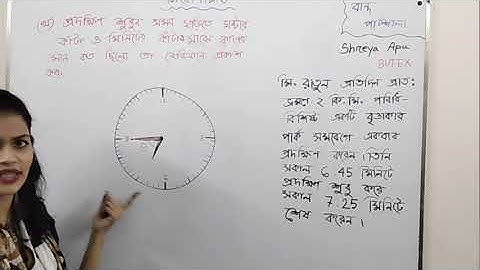 (খ) প্রদক্ষিণ শুরুর সময় ঘড়িতে ঘন্টার
কাঁটা ও মিনিটের কাঁটার মাঝের কোণের
মান কত ছিলো তা রেডিয়ানে প্রকাশ
কর।
পাঠশালা
Shreya Apu
BUTEX
মি. রাতুল প্রতিদিন প্রাত:
ভ্রমণে ২ কি.মি. পরিধি-
বিশিষ্ট একটি বৃত্তাকার
পার্ক সম্পূর্ণ একবার
প্রদক্ষিণ করেন। তিনি
সকাল 6.45 মিনিটে
প্রদক্ষিণ শুরু করে
সকাল 7.25 মিনিটে
শেষ করেন।